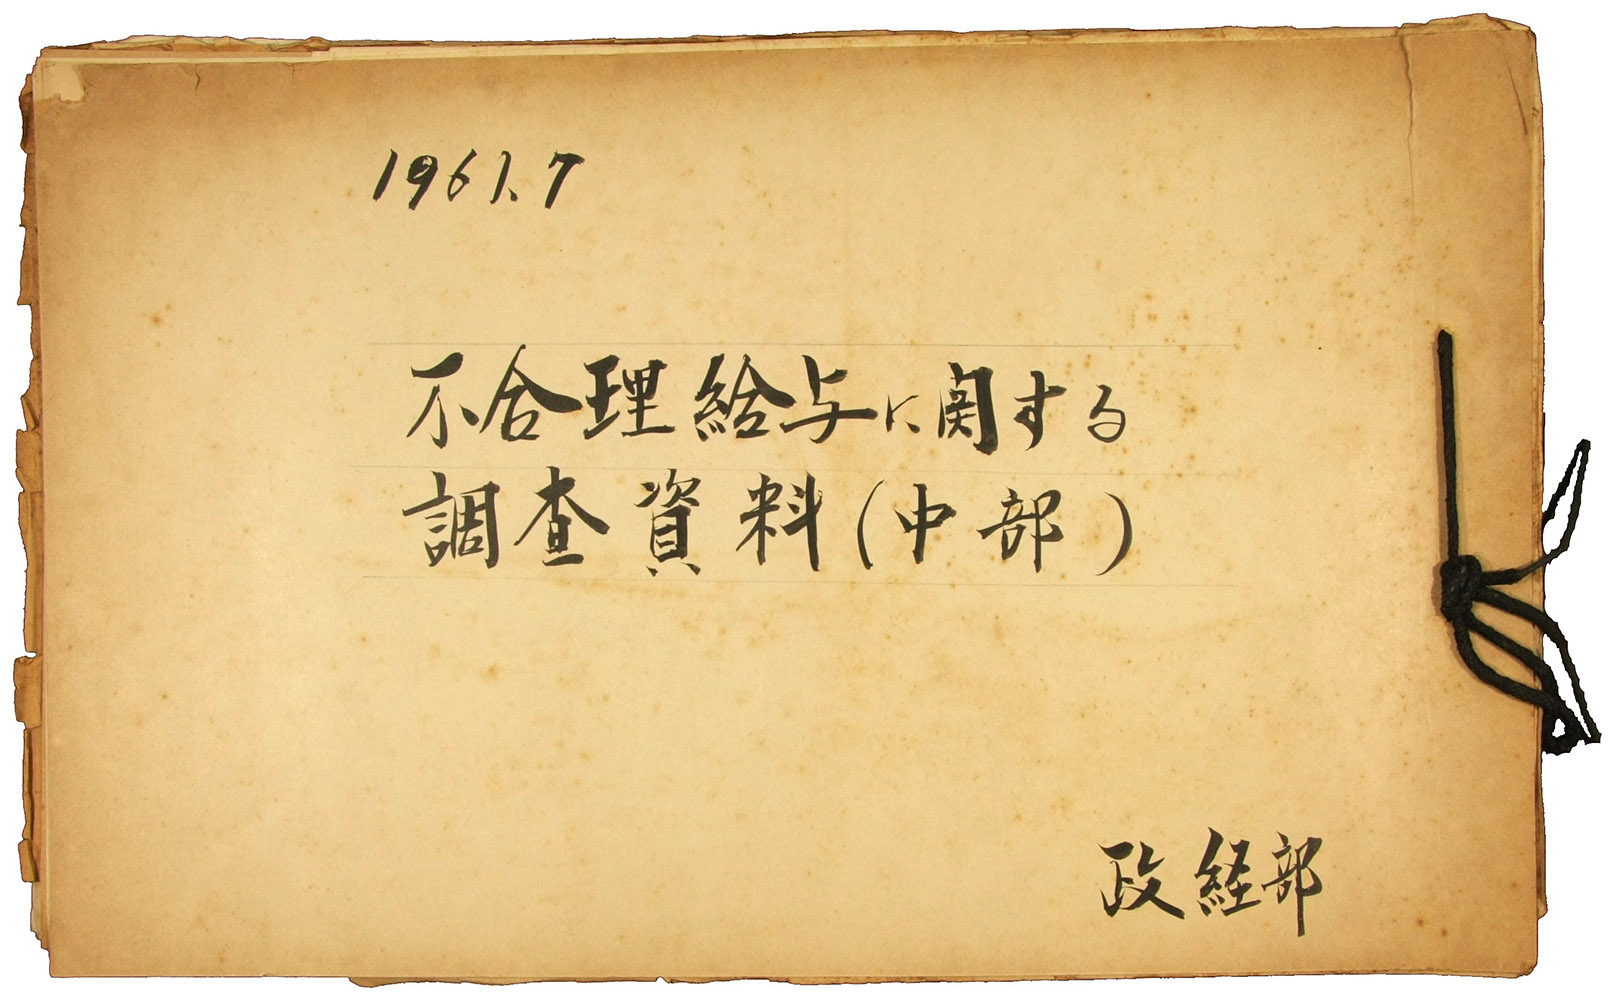 1961.7
不合理給与に関する
調査資料(中部)
政経部